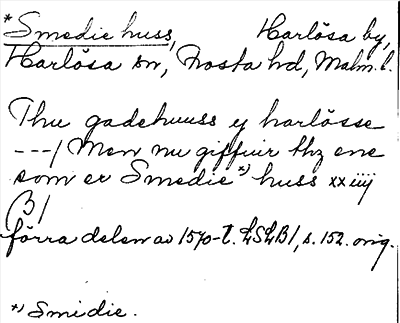 *Smedie huss, Harlösa by,
Harlösa sn, Frosta hd, Malm. l.
Thu gadehuuss y harlösse
---/ Men nu giffuir thz ene
som er Smedie *) huss xx iiij
β /
förra delen av 1570-t. LSLB 1, s. 152. orig.
*) Smidie.